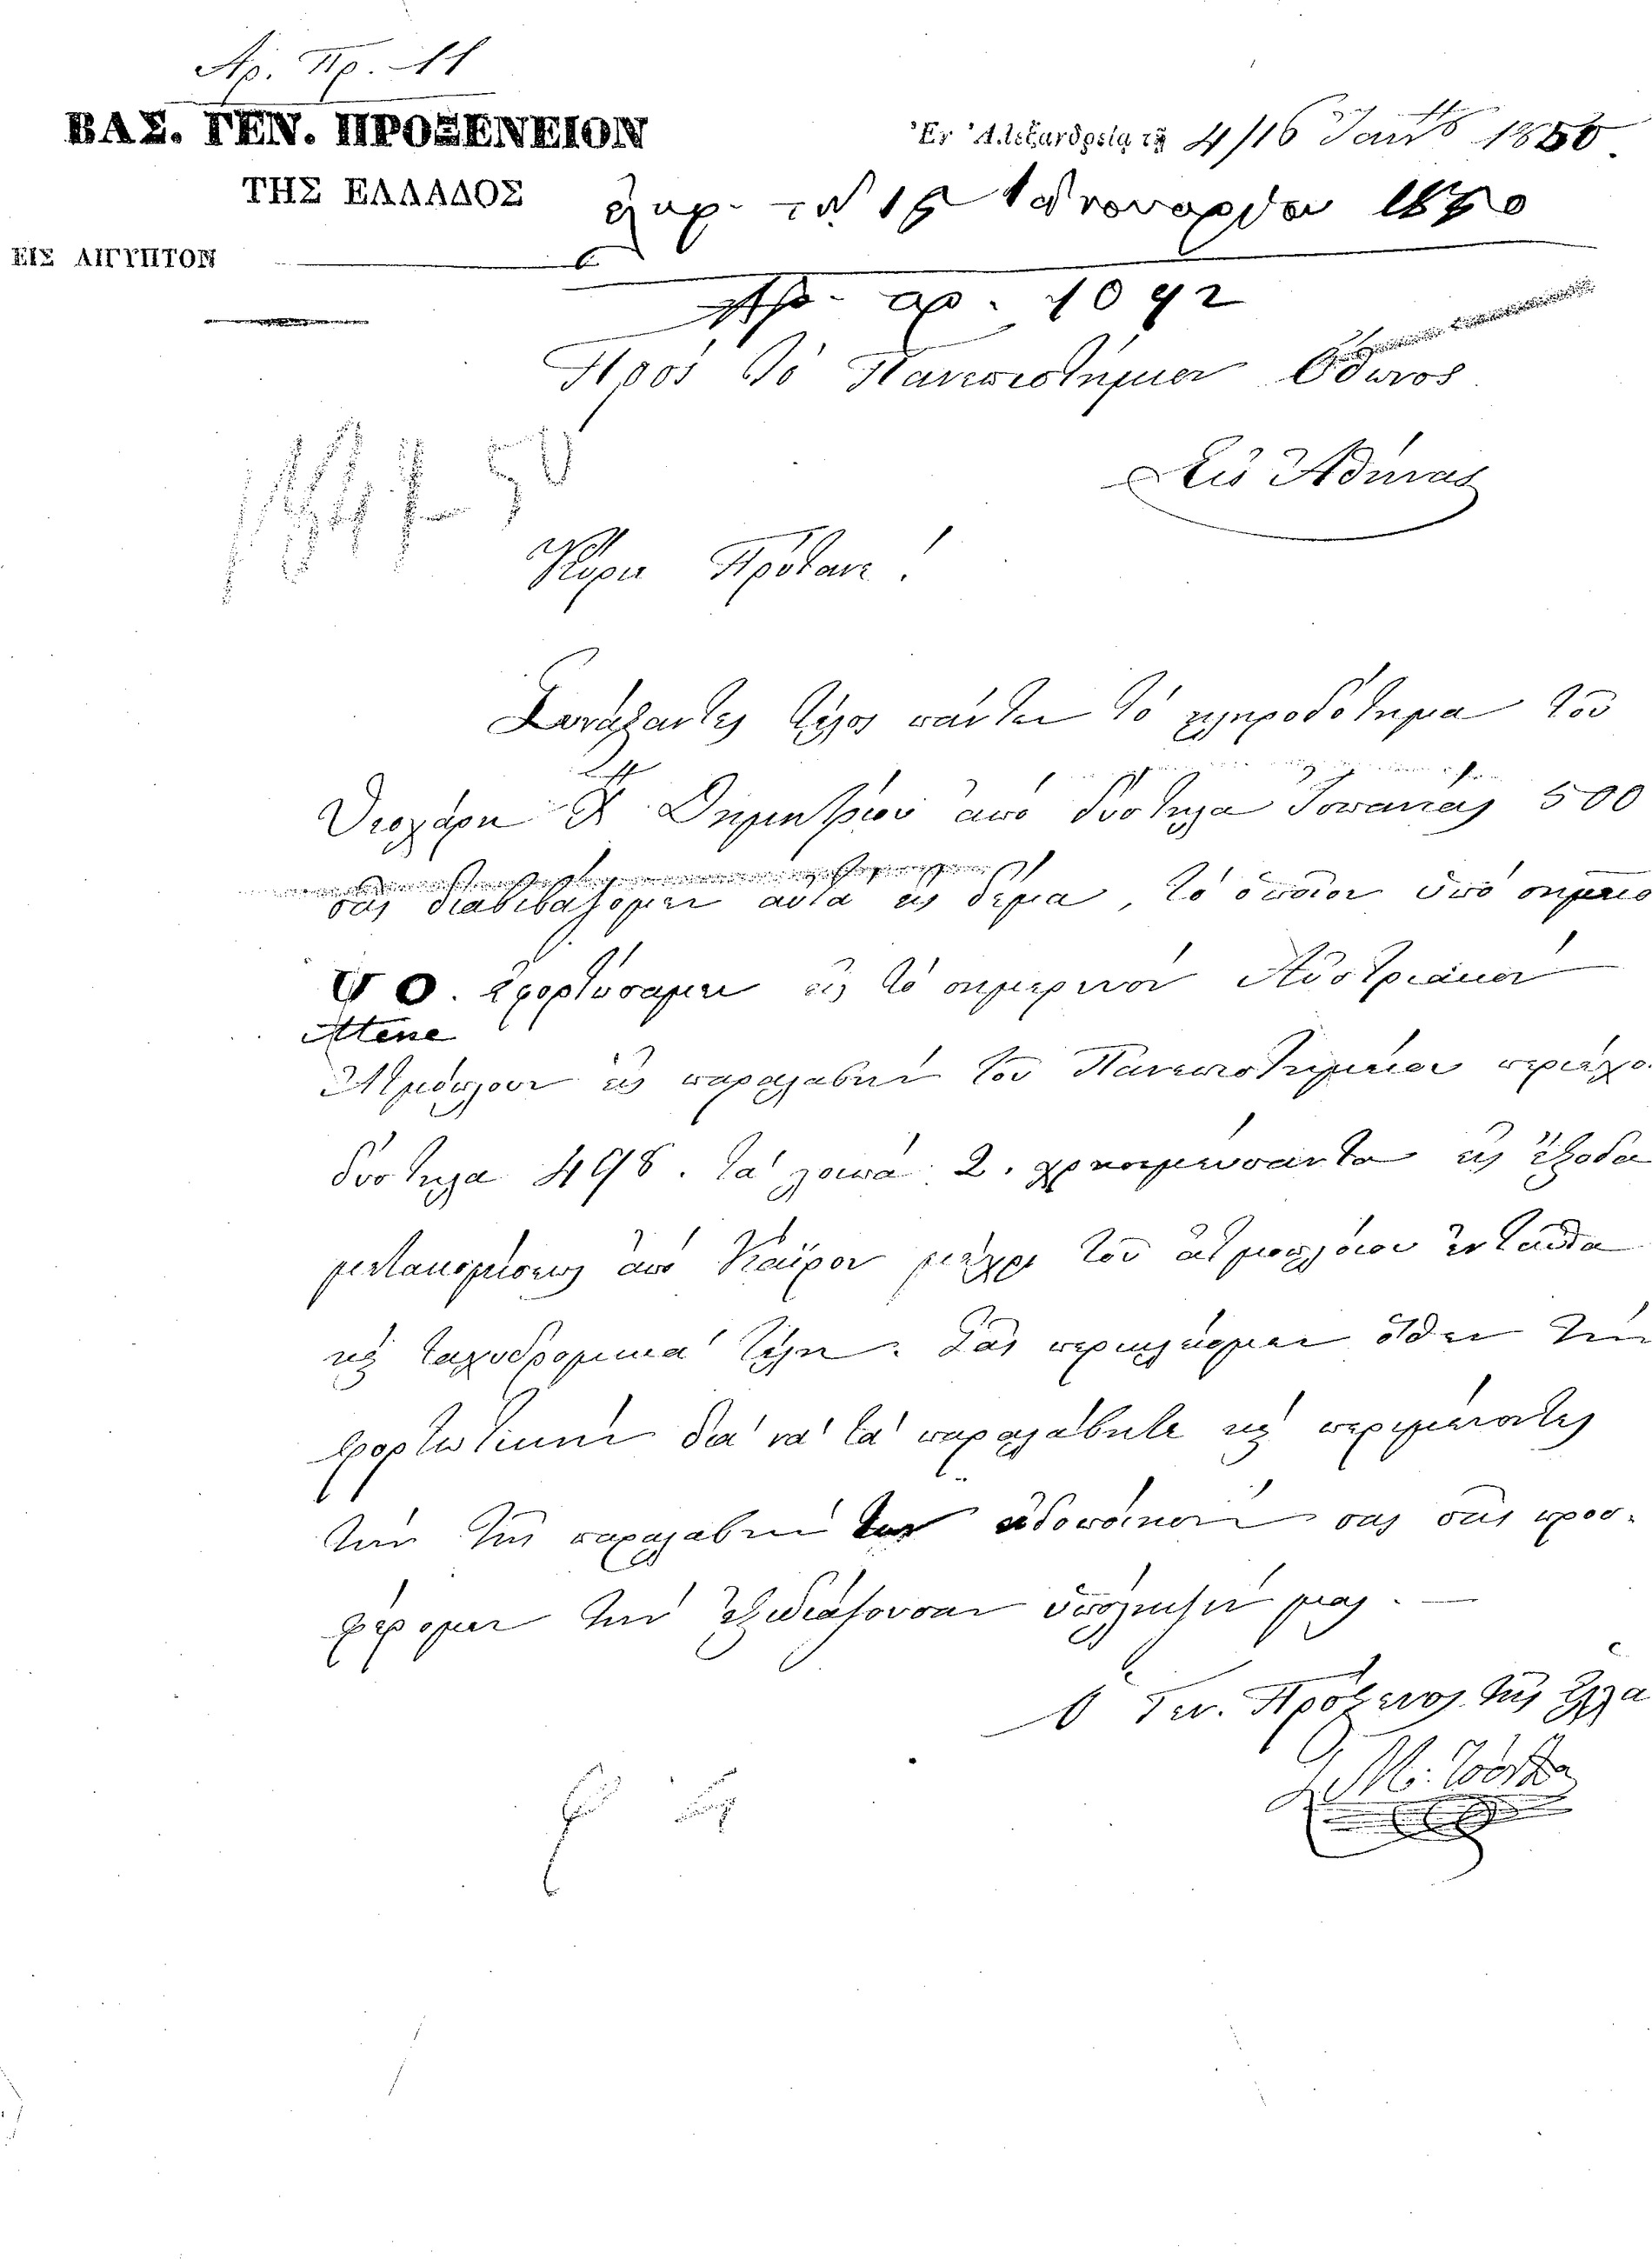 Αρ. Πρ. 11
ΒΑΣ. ΓΕΝ. ΠΡΟΞΕΝΕΙΟΝ
ΤΗΣ ΕΛΛΑΔΟΣ
ΕΙΣ ΑΙΓΥΠΤΟΝ
Ἐν Ἀλεξανδρείᾳ τῇ 4/16 1850
1850
Αρ. 1092
Πρὸς τὸ Πανεπιστήμιον Ὄθωνος
Εἰς Ἀθήνας
1849-50
Κύριε Πρύτανι!
Συνάξαντες τέλος πάντων τὸ κληροδότημα τοῦ
Θεοχάρη Χ Δημητρίου ἀπὸ δίστηλα Ἱσπανίας 500
σᾶς διαβιβάζομεν αὐτὰ εἰς δέμα, τὸ ὁποῖον ὑπὸ σημεῖο
ἐφορτώσαμεν εἰς τὸ σημερινὸν Αὐστριακὸν
Atene
Ἀτμόπλουν εἰς παραλαβὴν τοῦ Πανεπιστημίου περιέχο
δίστηλα 498. τὰ λοιπὰ 2. χρησιμεύσαντα εἰς ἔξοδα
μετακομίσεως ἀπὸ Κάϊρον μέχρι τοῦ ἀτμοπλόιου ἐνταῦθα
κὴ ταχυδρομικὰ τέλη. Σᾶς περικλείομεν ὅθεν τὴν
φορτωτικὴν διὰ νὰ τὰ παραλάβητε κὴ περιμένοντες
τὴν τῆς παραλαβὴν εἰδοποίησιν σας σᾶς προσ-
φέρομεν τὴν ἐξιδιάζουσαν ὑπόληψίν μας.
Ὁ Γεν. Πρόξενος τῆς Ἑλλά